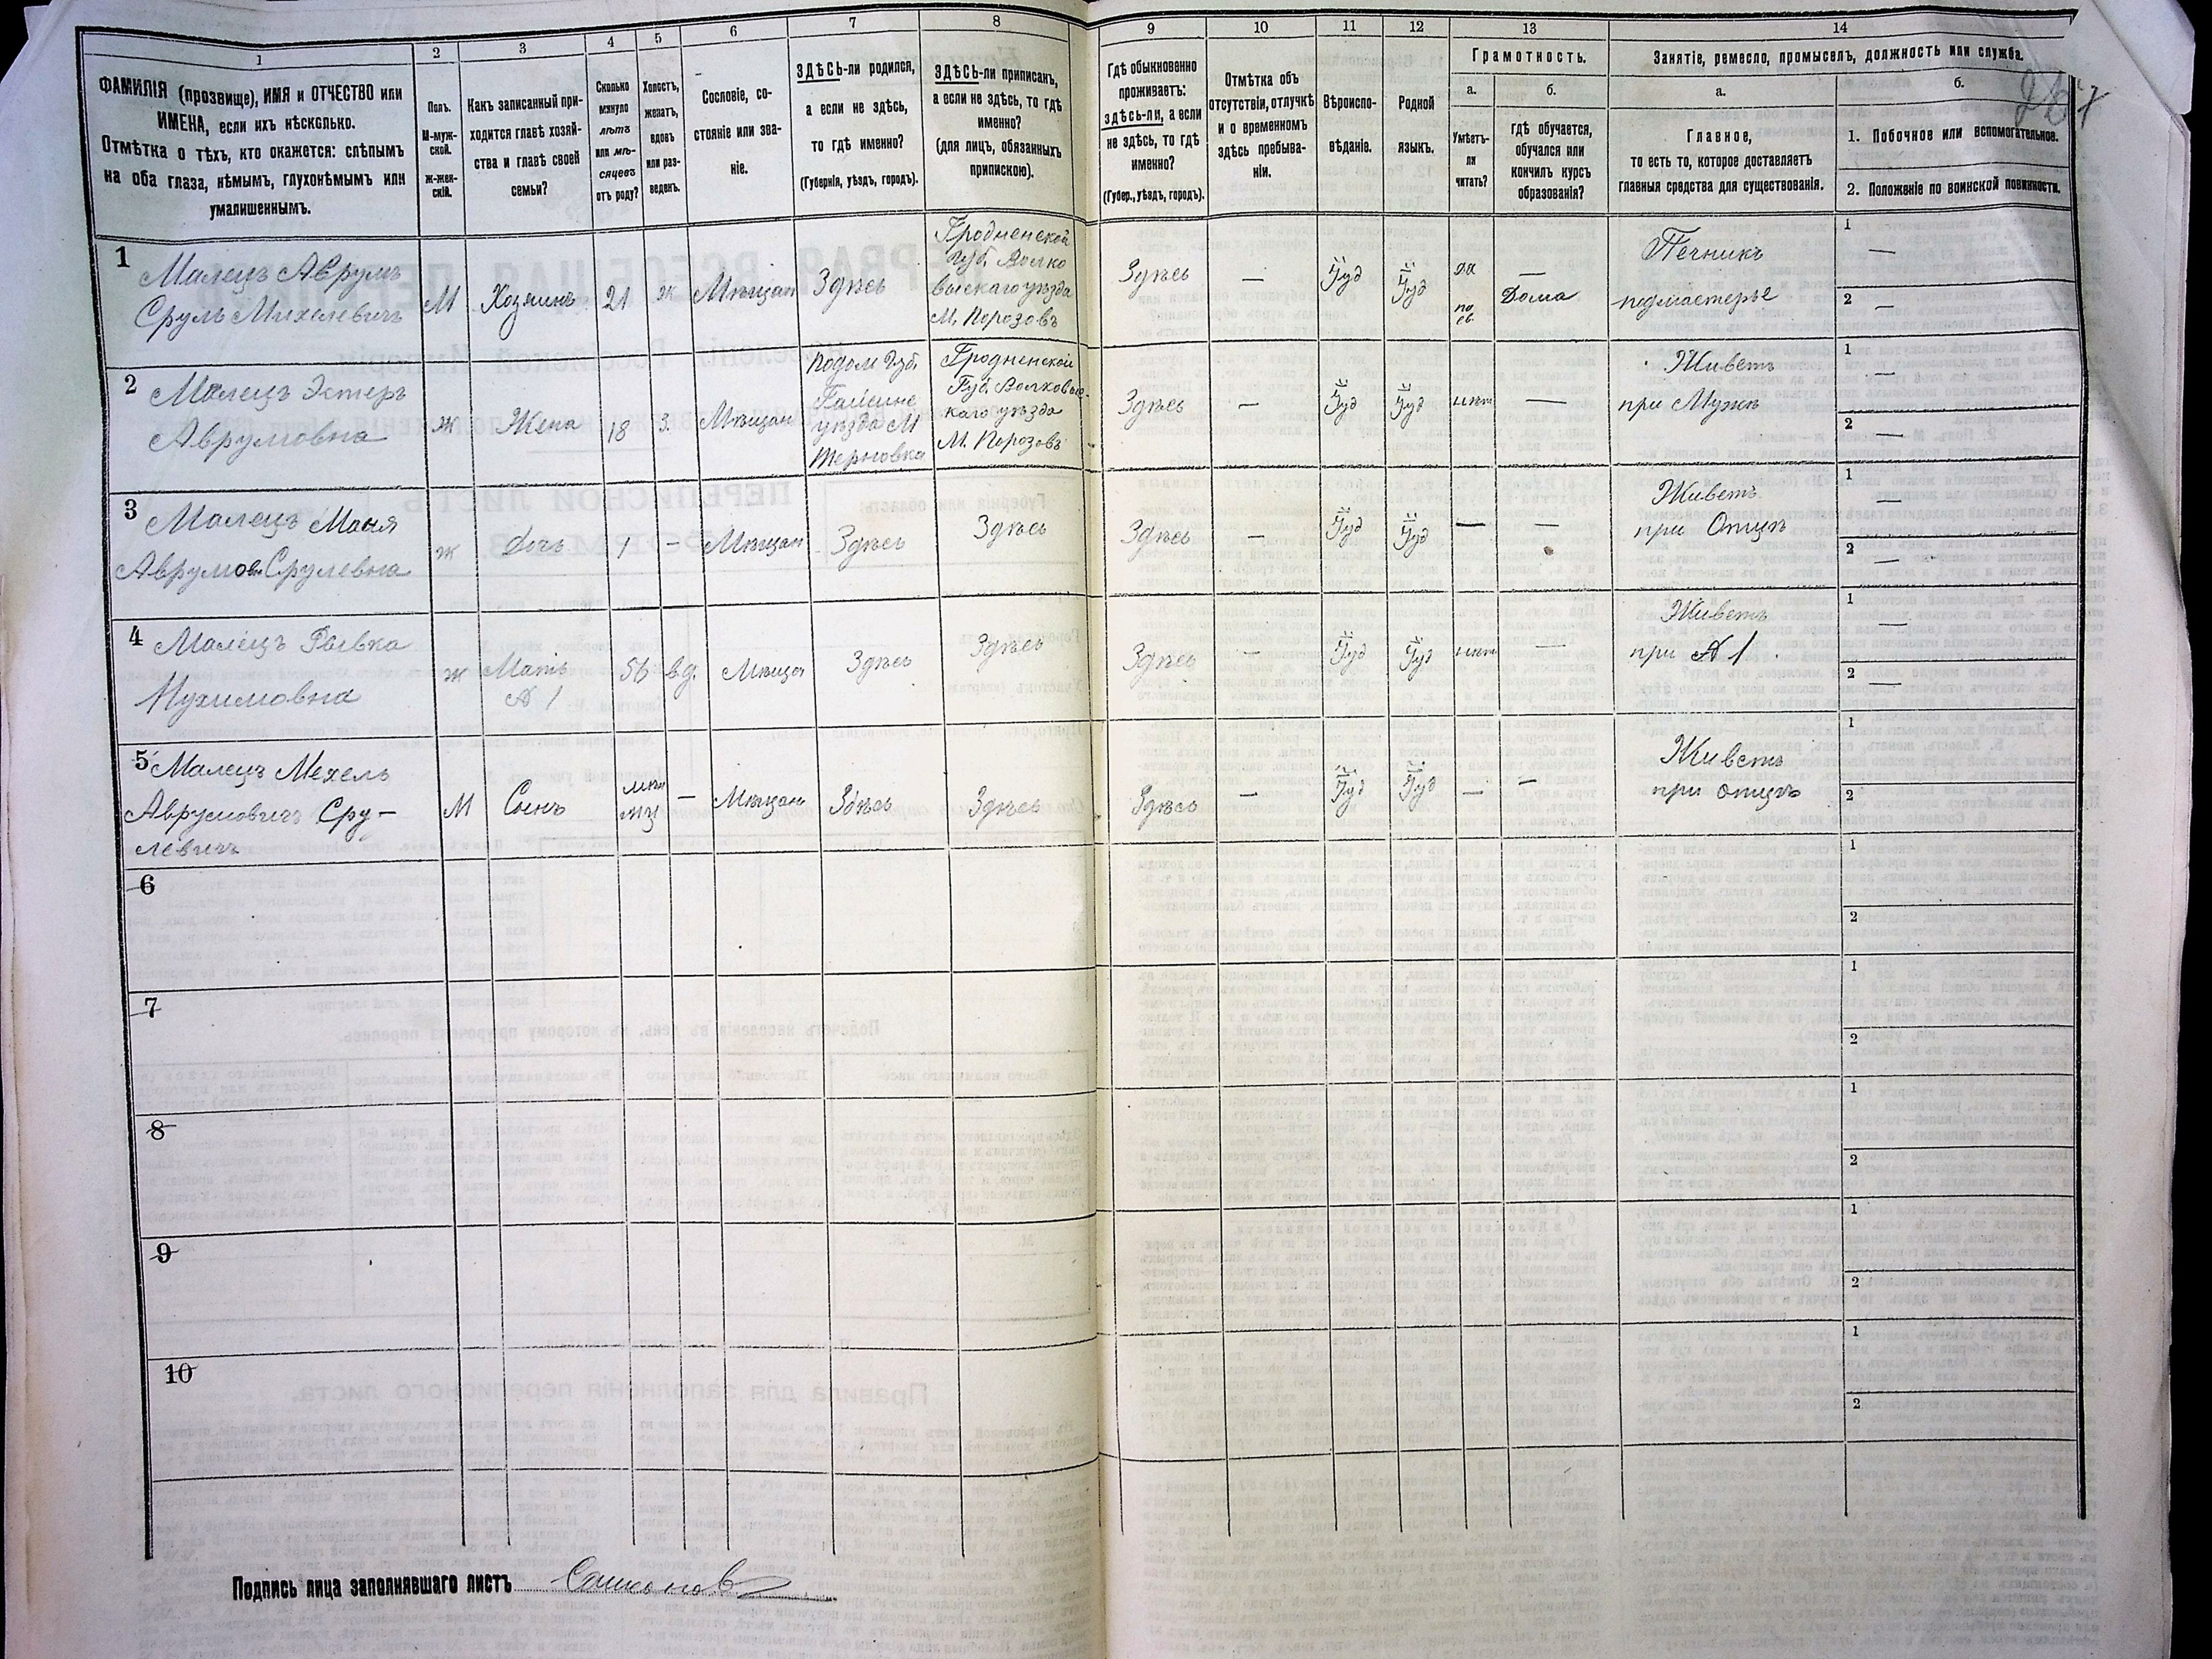 1
2
3
4
5
6
7
8
9
10
11
12
13
14
ФАМИЛІЯ (прозвище), ИМЯ и ОТЧЕСТВО или
ИМЕНА, если ихъ нѣсколько.
Отмѣтка о тѣхъ, кто окажется: слѣпымъ
на оба глаза, нѣмымъ, глухонѣмымъ или
умалишеннымъ.
Полъ.
М-муж-
ской.
Ж-жен-
скій.
Какъ записанный при-
ходится главѣ хозяй-
ства и главѣ своей
семьи?
Сколько
минуло
лѣтъ
или мѣ-
сяцевъ
отъ роду?
Холостъ,
женатъ,
вдовъ
или раз-
веденъ.
Сословіе, со-
стояніе или зва-
ніе.
ЗДѢСЬ-ли родился,
а если не здѣсь,
то гдѣ именно?
(Губернія, уѣздъ, городъ).
ЗДѢСЬ-ли приписанъ,
а если не здѣсь, то гдѣ
именно?
(для лицъ, обязанныхъ
припискою).
Гдѣ обыкновенно
проживаетъ:
здѣсь-ли, а если
не здѣсь, то гдѣ
именно?
(Губер., уѣздъ, городъ).
Отмѣтка объ
отсутствіи, отлучкѣ
и о временномъ
здѣсь пребыва-
ніи.
Вѣроиспо-
вѣданіе.
Родной
языкъ.
Грамотность.
а.
Умѣетъ-
ли
читать?
б.
гдѣ обучается,
обучался или
кончилъ курсъ
образованія?
Занятіе, ремесло, промыселъ, должность или служба.
а.
Главное,
то есть то, которое доставляетъ
главныя средства для существованія.
б.
1. Побочное или вспомогательное.
2. Положеніе по воинской повинности.
1
Малецъ Аврумъ
Сруль Михелевичъ
М
Хозяинъ
21
ж
Мѣщан
Здѣсь
Гродненской
Губ. Волко
выскаго уѣзда
М. Порозовъ
Здѣсь
—
Іуд
Іуд
да
по
ев.
—
Дома
Печникъ
подмастерье
1 —
2 —
2
Малецъ Эстеръ
Аврумовна
ж
Жена
18
З.
Мѣщан
Подол Губ.
уѣзда М
Терновка
Гродненской
Губ. Волковыс-
каго уѣзда
М. Порозовъ
Здѣсь
—
Іуд
Іуд
нѣтъ
—
Живетъ
при Мужѣ
1 —
2 —
3
Малецъ Маня
Аврумовн Срулевна
ж
Дочь
1
—
Мѣщан
Здѣсь
Здѣсь
Здѣсь
—
Іуд
Іуд
—
—
Живетъ
при Отцѣ
1 —
2 —
4
Малецъ Рывка
Нухимовна
ж
Мать
№ 1
56
вд.
Мѣщан
Здѣсь
Здѣсь
Здѣсь
—
Іуд
Іуд
нѣтъ
—
Живетъ
при № 1
1 —
2 —
5
Малецъ Мехель
Аврумовичъ Сру-
левичъ
М
Сынъ
—
Мѣщан
Здѣсь
Здѣсь
Здѣсь
—
Іуд
Іуд
—
—
Живетъ
при отцѣ
1
2
6
1
2
7
1
2
8
1
2
9
1
2
10
1
2
Подпись лица заполнявшаго листъ